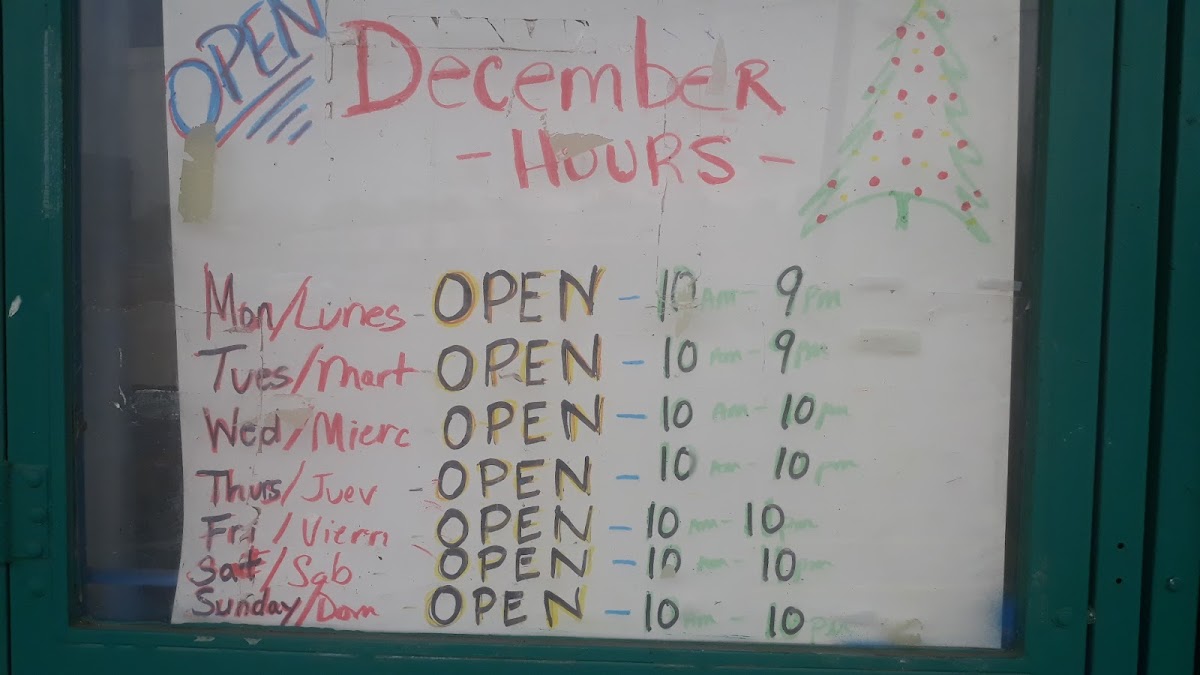 OPEN
DecembeR
- HOURS -
Mon/Lunes - OPEN - 10 Am - 9 Pm
Tues/Mart - OPEN - 10 Am - 9 pm
Wed/Mierc OPEN - 10 Am - 10 pm
Thurs/Juev - OPEN - 10 Am - 10 pm
Fri/Viern OPEN - 10 Am - 10 pm
Sat/Sab - OPEN - 10 Am - 10 pm
Sunday/Dom - OPEN - 10 Am - 10 pm